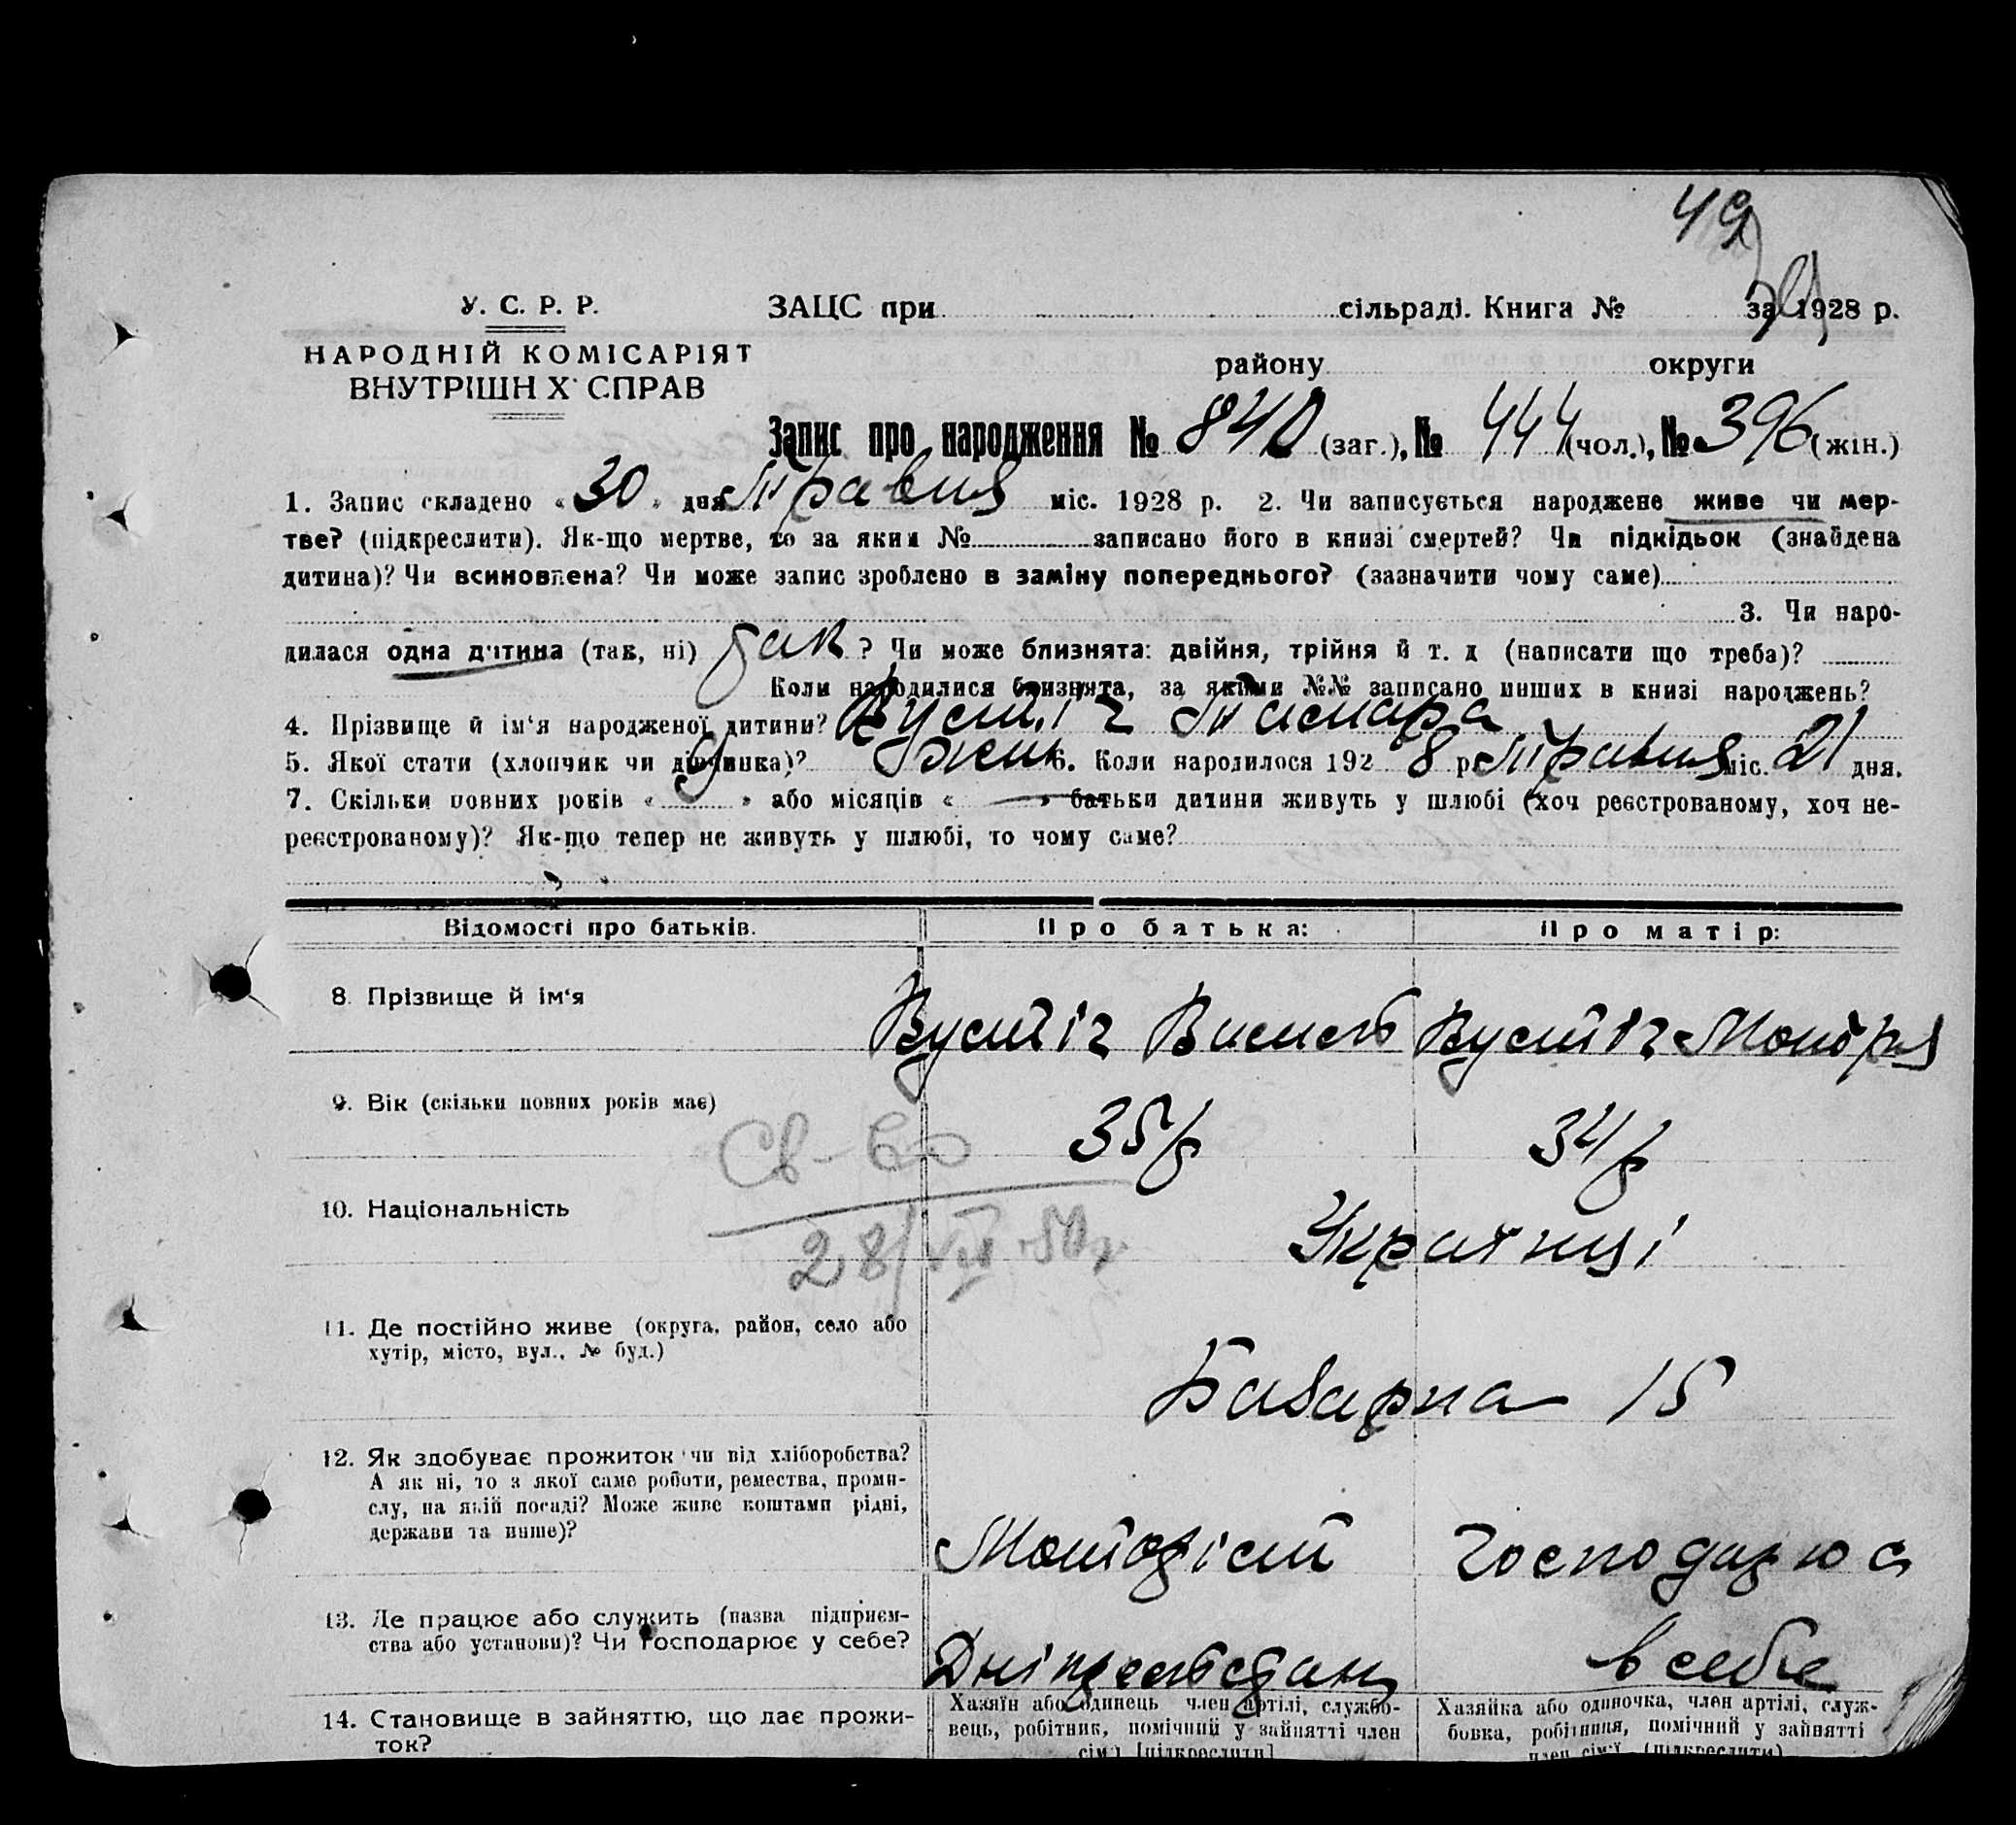 49
У. С. Р. Р. ЗАЦС при сільраді. Книга № за 1928 р.
НАРОДНІЙ КОМІСАРІЯТ
ВНУТРІШН Х СПРАВ
району округи
Запис про народження № 840 (заг.), № 444 (чол.), № 396 (жін.)
1. Запис складено « 30 » дня Травня міс. 1928 р. 2. Чи записується народжене живе чи мер-
тве? (підкреслити). Як-що мертве, то за яким № записано його в книзі смертей? Чи підкідьок (знайдена
дитина)? Чи всиновлена? Чи може запис зроблено в заміну попереднього? (зазначити чому саме)
3. Чи наро-
дилася одна дитина (так, ні) так ? Чи може близнята: двійня, трійня й т. д (написати що треба)?
Коли народилися близнята, за якими №№ записано инших в книзі народжень?
4. Прізвище й ім‘я народженої дитини? Вустіч Тамара
5. Якої стати (хлопчик чи дівчинка)? жень 6. Коли народилося 192 8 р Травня міс. 21 дня.
7. Скільки повних років « » або місяців « » батьки дитини живуть у шлюбі (хоч реєстрованому, хоч не-
реєстрованому)? Як-що тепер не живуть у шлюбі, то чому саме?
Відомості про батьків. Про батька: Про матір:
8. Прізвище й ім‘я
Вустіч Вустіч
9. Вік (скільки повних років має)
35 34
Св-во
10. Національність
28/VII 50г.
Українці
11. Де постійно живе (округа, район, село або
хутір, місто, вул., № буд.)
Базарна 15
12. Як здобуває прожиток чи від хліборобства?
А як ні, то з якої саме роботи, ремества, проми-
слу, на якій посаді? Може живе коштами рідні,
держави та инше)?
Господарює
13. Де працює або служить (назва підприєм-
ства або установи)? Чи господарює у себе?
в себе
14. Становище в зайняттю, що дає прожи-
ток?
Хазяїн або одинець член артілі, службо-
вець, робітник, помічний у зайнятті член
сім‘ї [підкреслити]
Хазяйка або одиночка, член артілі, служ-
бовка, робітниця, помічний у зайнятті
член сім‘ї (підкреслити)